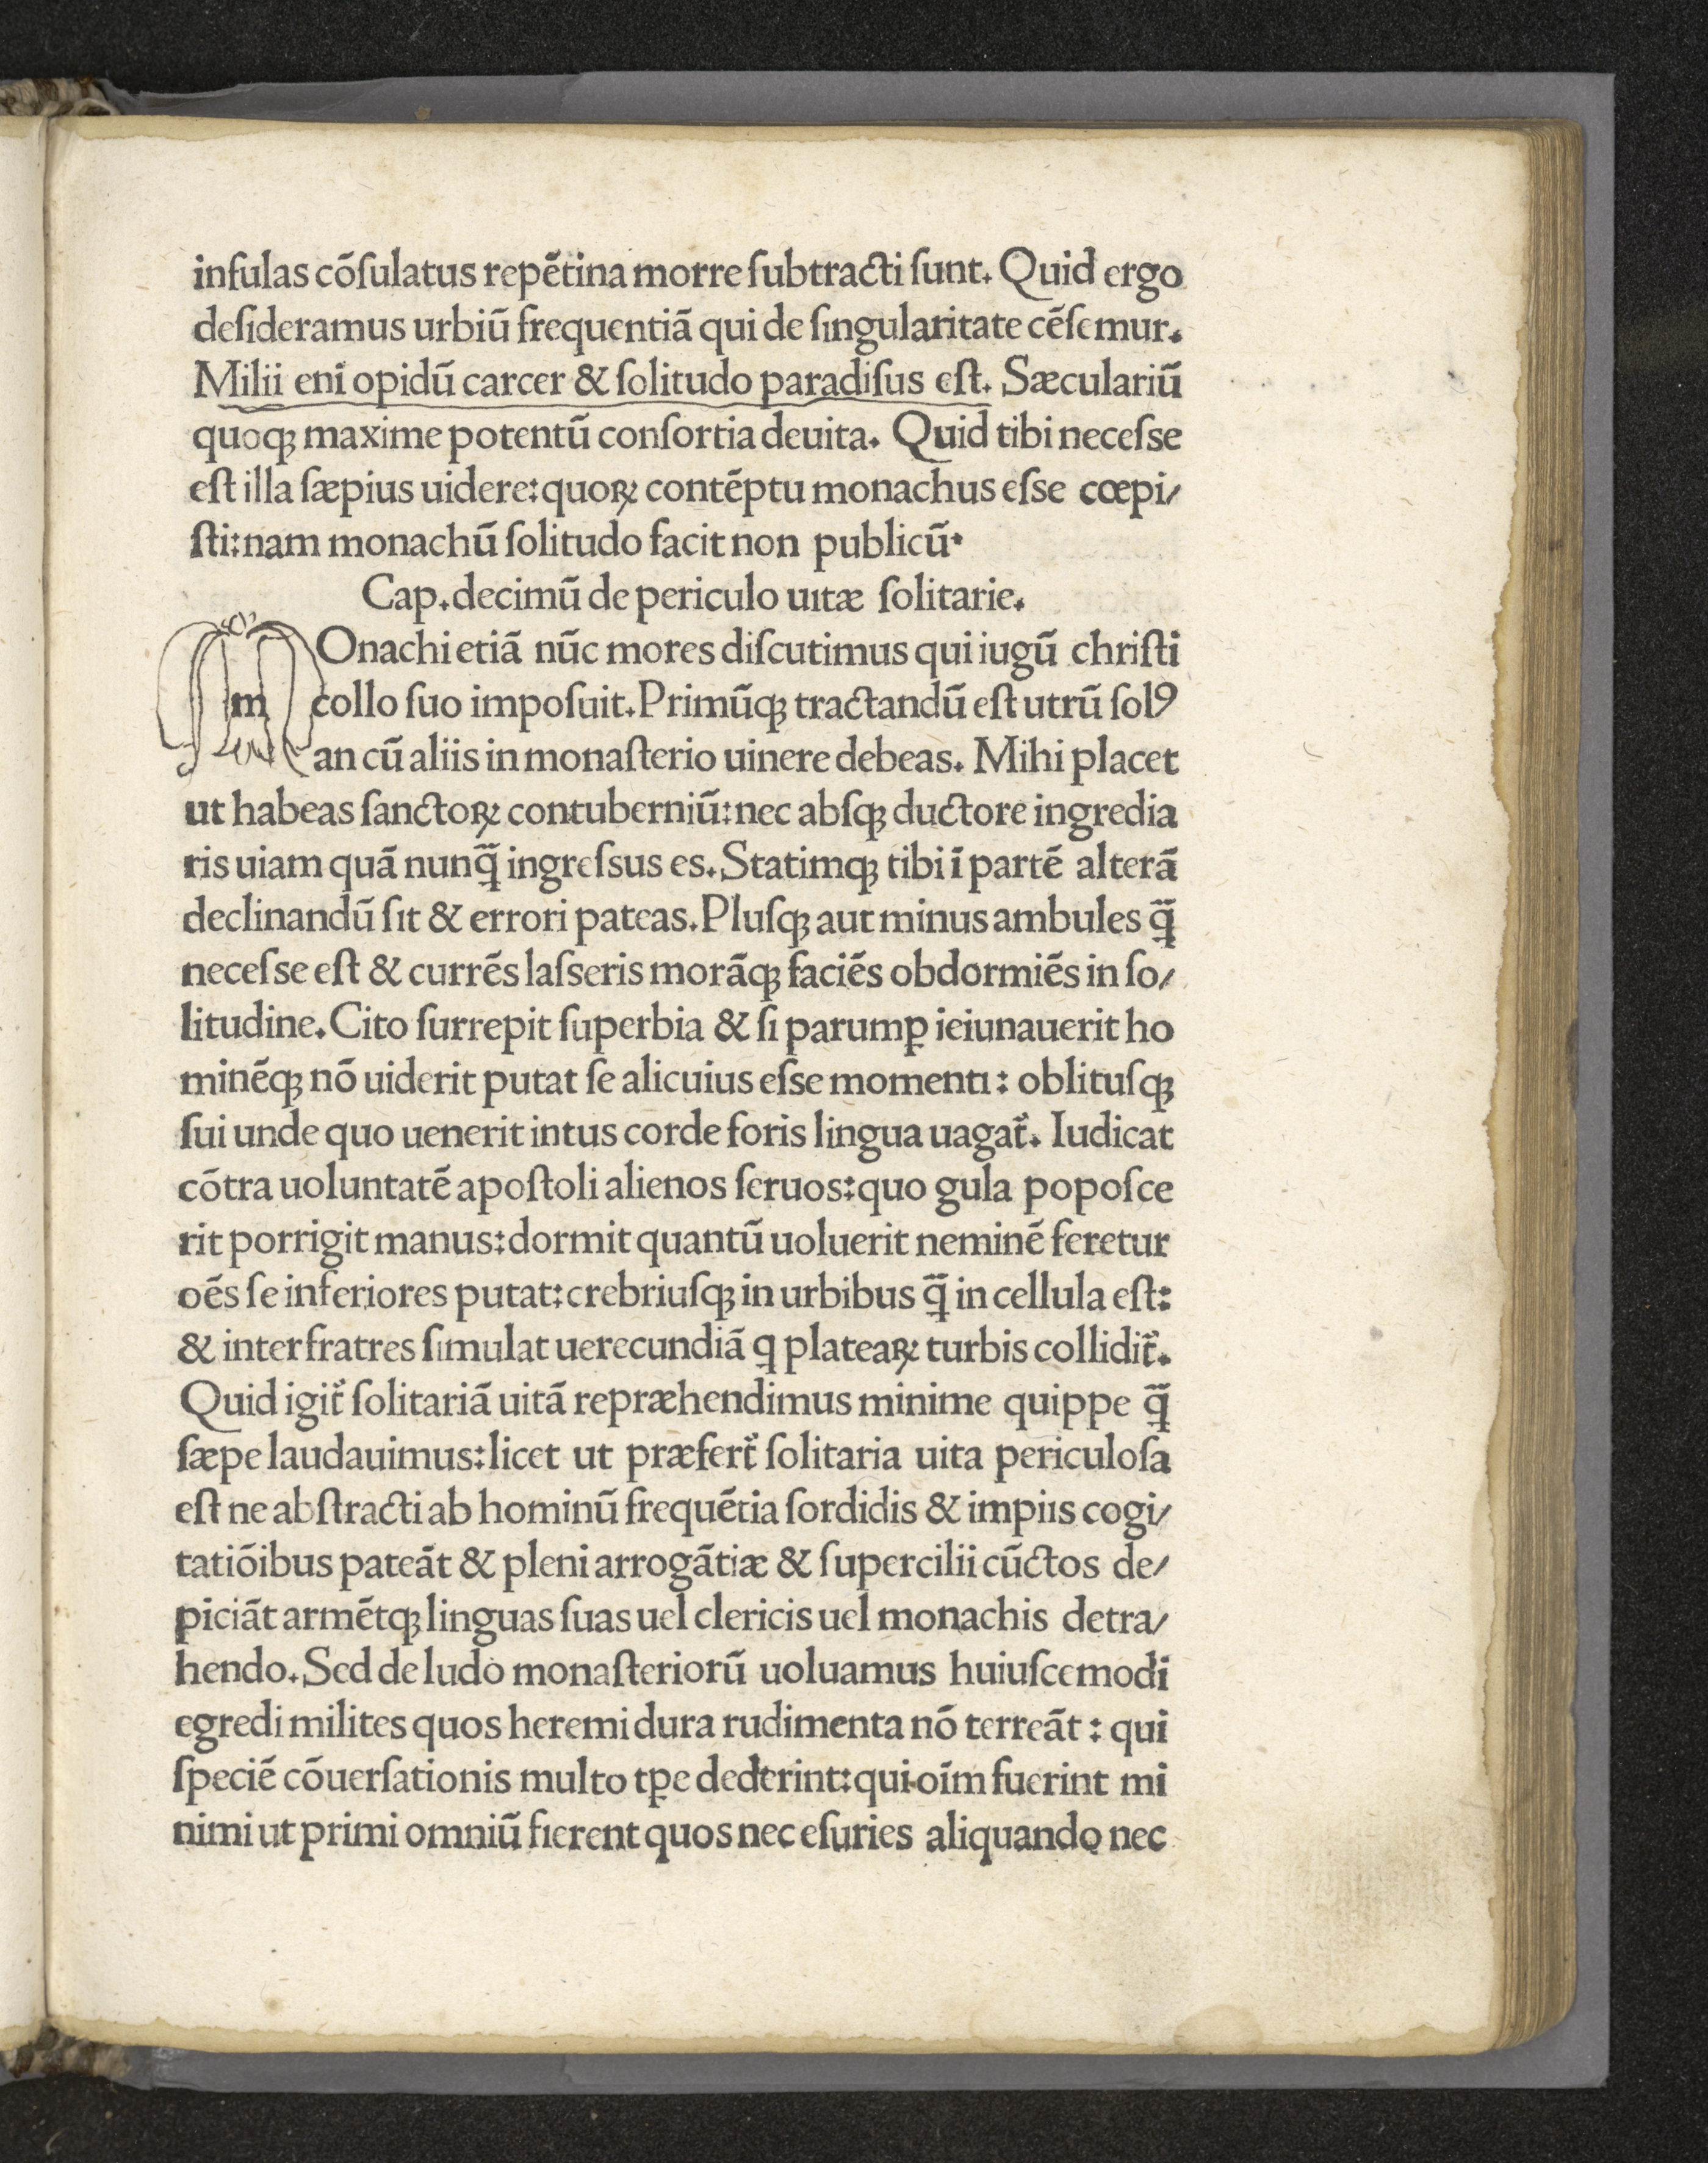 infulas cōſulatus repētina morre ſubtracti ſunt. Quid ergo
deſideramus urbiū frequentiā qui de ſingularitate cēſemur.
Milii eni opidū carcer & ſolitudo paradiſus eſt. Sæculariū
quoqꝫ maxime potentū conſortia deuita. Quid tibi neceſse
eſt illa ſæpius uidere: quoꝝ contēptu monachus eſse cœpi/
ſti: nam monachū ſolitudo facit non publicū.
Cap. decimū de periculo uıtæ ſolitarie.
mOnachi etiā nūc mores diſcutimus qui iugū chriſti
collo ſuo impoſuit. Primūqꝫ tractandū eſt utrū ſolꝰ
an cū aliis in monaſterio uinere debeas. Mihi placet
ut habeas ſanctoꝝ contuberniū: nec abſqꝫ ductore ingredia
ris uiam quā nunq̄̃ ingreſsus es. Statimqꝫ tibi ī partē alterā
declinandū ſit & errori pateas. Pluſqꝫ aut minus ambules q̄̃
neceſse eſt & currēs laſseris morāqꝫ faciēs obdormiēs in ſo/
litudine. Cito ſurrepit ſuperbia & ſi parumꝑ ieiunauerit ho
minēqꝫ nō uiderit putat ſe alicuius eſse momentı: oblituſqꝫ
ſui unde quo uenerit intus corde foris lingua uagat᷑. Iudicat
cōtra uoluntatē apoſtoli alienos ſeruos: quo gula popoſce
rit porrigit manus: dormit quantū uoluerit neminē feretur
oēs ſe inferiores putat: crebriuſqꝫ in urbibus q̄̃ in cellula eſt:
& inter fratres ſimulat uerecundiā q plateaꝝ turbis collidit᷑.
Quid igit᷑ ſolitariā uitā repræhendimus minime quippe q̄̃
ſæpe laudauimus: licet ut præfert᷑ ſolitaria uita periculoſa
eſt ne abſtracti ab hominū frequētia ſordidis & impiıs cogi/
tatiōibus pateāt & pleni arrogātiæ & ſupercilii cūctos de/
piciāt armētqꝫ linguas ſuas uel clericis uel monachis detra/
hendo. Sed de ludo monaſteriorū uoluamus huiuſcemodi
egredi milites quos heremi dura rudimenta nō terreāt: qui
ſpeciē cōuerſationis multo tꝑe dederint: qui oīm fuerint mi
nimi ut primi omniū fierent quos nec eſuries aliquando nec